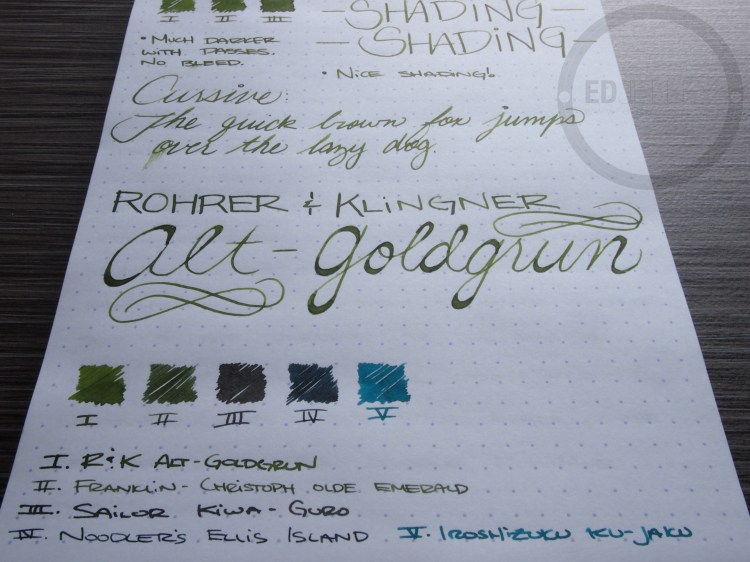 I II III
-SHADING-
-SHADING-
• MUCH DARKER
WITH PASSES.
NO BLEED.
• NICE SHADING!
Cursive:
The quick brown fox jumps
over the lazy dog.
ROHRER & KLINGNER
Alt-Goldgrun
I II III IV V
I. R&K ALT-GOLDGRUN
II. FRANKLIN-CHRISTOPH OLDE EMERALD
III. SAILOR KIWA-GURO
IV. NOODLER'S ELLIS ISLAND V. IROSHIZUKU KU-JAKU
ED